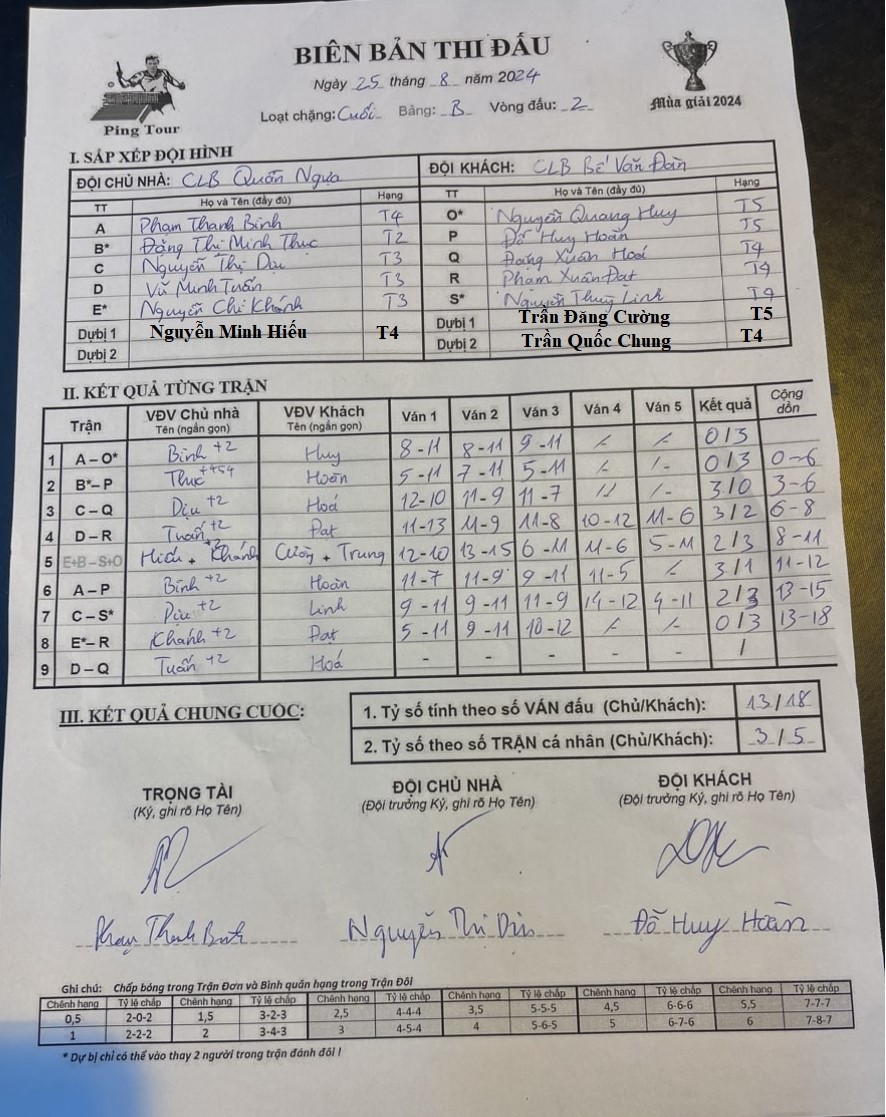 BIÊN BẢN THI ĐẤU
Ngày 25 tháng 8 năm 2024
Loạt chặng: Cuối Bảng: B Vòng đấu: 2
Ping Tour
Mùa giải 2024
I. SẮP XẾP ĐỘI HÌNH
ĐỘI CHỦ NHÀ: CLB Quần Ngựa ĐỘI KHÁCH: CLB Bế Văn Đàn
TT Họ và Tên (đầy đủ) Hạng TT Họ và Tên (đầy đủ) Hạng
A Phạm Thanh Bình T4 O* Nguyễn Quang Huy T5
B* Đặng Thị Minh Thục T2 P Đỗ Huy Hoàn T5
C Nguyễn Thị Dịu T3 Q Đặng Xuân Hoá T4
D Vũ Minh Tuấn T3 R Phạm Xuân Đạt T4
E* Nguyễn Chi Khánh T3 S* Nguyễn Thuỳ Linh T4
Dựbị 1 Nguyễn Minh Hiếu T4 Dựbị 1 Trần Đăng Cường T5
Dựbị 2 Dựbị 2 Trần Quốc Chung T4
II. KẾT QUẢ TỪNG TRẬN
Trận VĐV Chủ nhà Tên (ngắn gọn) VĐV Khách Tên (ngắn gọn) Ván 1 Ván 2 Ván 3 Ván 4 Ván 5 Kết quả Cộng dồn
1 A – O* Bình +2 Huy 8-11 8-11 9-11 0/3
2 B*– P Thục Hoàn 5-11 7-11 5-11 0/3 0-6
3 C – Q Dịu +2 Hoá 12-10 11-9 11-7 3/0 3-6
4 D – R Tuấn +2 Đạt 11-13 11-9 11-8 10-12 11-6 3/2 6-8
5 E+B – S+O Hiếu + Khánh +2 Cường + Trung 12-10 13-15 6-11 11-6 5-11 2/3 8-11
6 A – P Bình +2 Hoàn 11-7 11-9 9-11 11-5 3/1 11-12
7 C – S* Dịu +2 Linh 9-11 9-11 11-9 14-12 4-11 2/3 13-15
8 E*– R Khánh +2 Đạt 5-11 9-11 10-12 0/3 13-18
9 D – Q Tuấn +2 Hoá - - - - - /
III. KẾT QUẢ CHUNG CUỘC:
1. Tỷ số tính theo số VÁN đấu (Chủ/Khách): 13/18
2. Tỷ số theo số TRẬN cá nhân (Chủ/Khách): 3/5
TRỌNG TÀI ĐỘI CHỦ NHÀ ĐỘI KHÁCH
(Ký, ghi rõ Họ Tên) (Đội trưởng Ký, ghi rõ Họ Tên) (Đội trưởng Ký, ghi rõ Họ Tên)
Phạm Thanh Bình Nguyễn Thị Dịu Đỗ Huy Hoàn
Ghi chú: Chấp bóng trong Trận Đơn và Bình quân hạng trong Trận Đôi
Chênh hạng Tỷ lệ chấp Chênh hạng Tỷ lệ chấp Chênh hạng Tỷ lệ chấp Chênh hạng Tỷ lệ chấp Chênh hạng Tỷ lệ chấp Chênh hạng Tỷ lệ chấp
0,5 2-0-2 1,5 3-2-3 2,5 4-4-4 3,5 5-5-5 4,5 6-6-6 5,5 7-7-7
1 2-2-2 2 3-4-3 3 4-5-4 4 5-6-5 5 6-7-6 6 7-8-7
* Dự bị chỉ có thể vào thay 2 người trong trận đánh đôi !